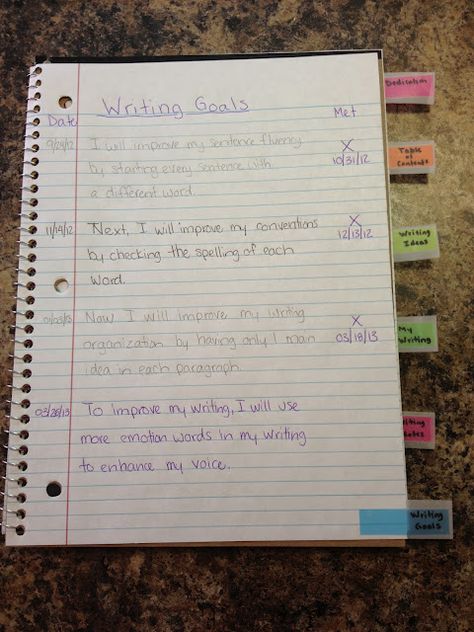 Writing Goals
Date
Met
9/24/12 I will improve my sentence fluency X
by starting every sentence with 10/31/12
a different word.
11/14/12 Next, I will improve my conventions X
by checking the spelling of each 12/13/12
word.
01/03/13 Now I will improve my writing X
organization by having only 1 main 03/18/13
idea in each paragraph.
03/28/13 To improve my writing, I will use
more emotion words in my writing
to enhance my voice.
Dedication
Table
of
Contents
Writing
Ideas
My
Writing
Writing
Goals